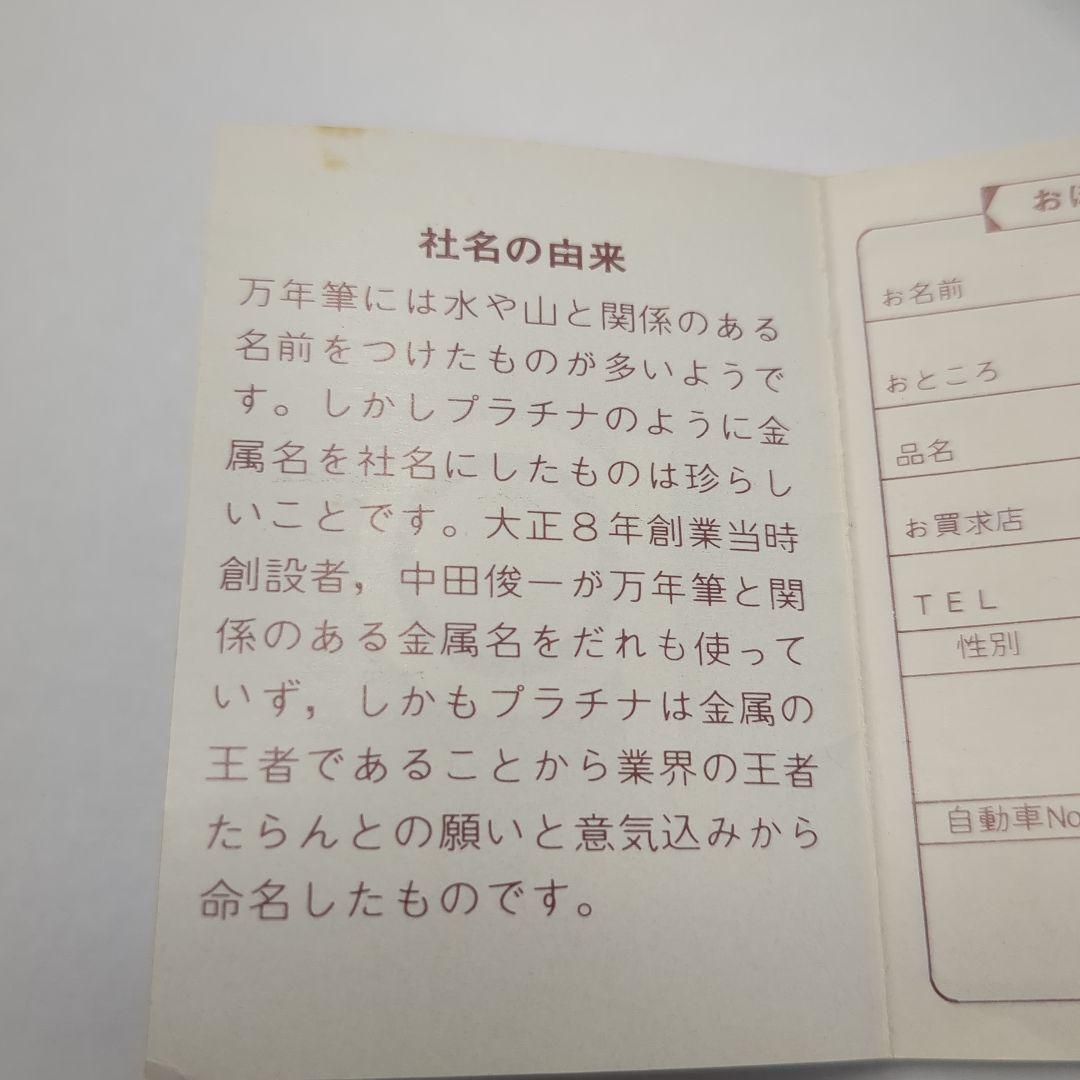 社名の由来
万年筆には水や山と関係のある
名前をつけたものが多いようで
す。しかしプラチナのように金
属名を社名にしたものは珍らし
いことです。大正8年創業当時
創設者，中田俊一が万年筆と関
係のある金属名をだれも使って
いず，しかもプラチナは金属の
王者であることから業界の王者
たらんとの願いと意気込みから
命名したものです。
お名前
おところ
品名
お買求店
TEL
性別
自動車No